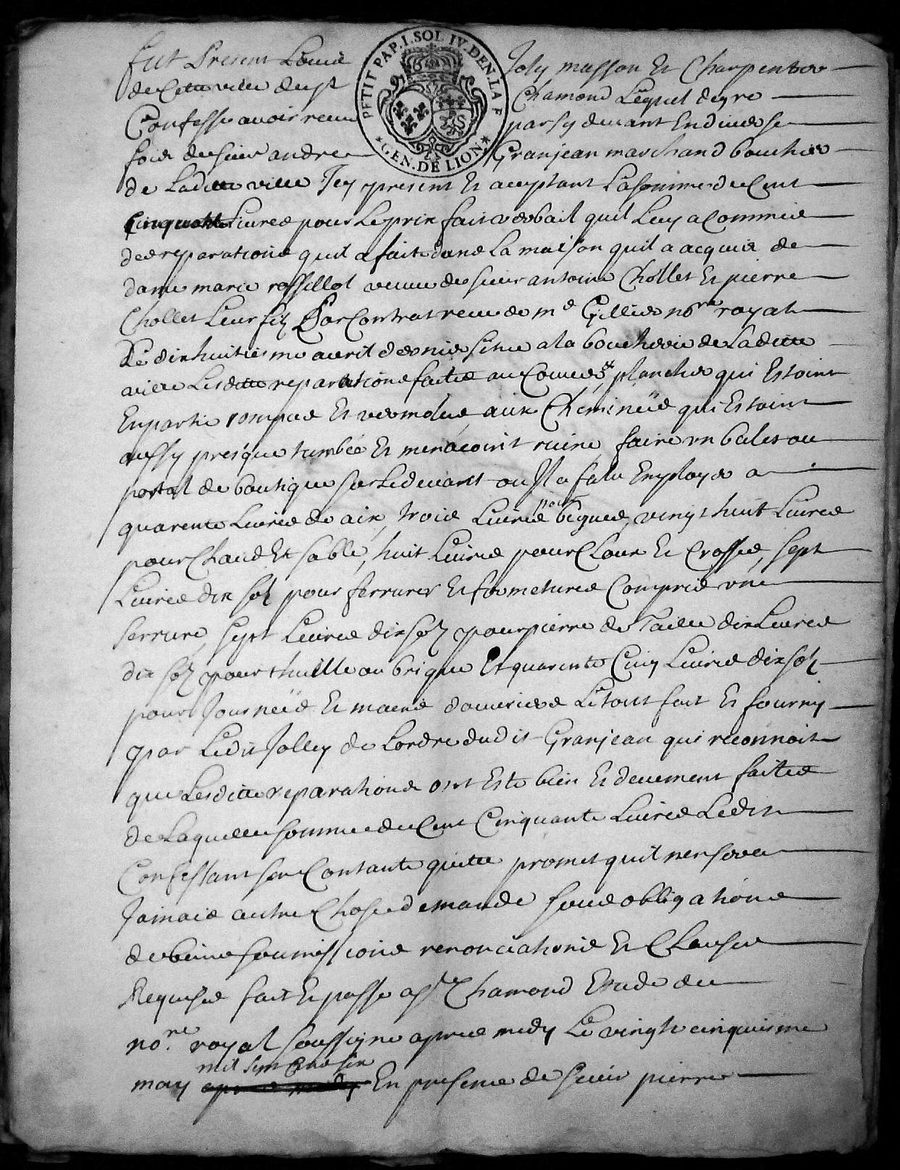 PETIT PAP. I. SOL IV. DEN. LA F
GEN. DE LION
fut present Louis Joly masson et Charpentier
de Cette ville de st Chamond Lequel de gre
Confesse avoir receu par sy devant en diverse
fois du sieur andre Granjean marchand boucher
de Laditte ville Jcy present et aceptant La somme de Cent
Cinquante Livres pour Le prix fait verbail quil Luy a Commis
des reparations quil a fait dans La maison quil a acquis de
dame marie rossillol veuve de sieur antoine Chollet et pierre
Chollet Leur fiz Par Contrat receu de me Gillier nore royal
Le dix huitiesme avril dernier sitüe a la boucherie de Laditte
ville Lesditte reparations faitte au Couvert, plancher qui Estoint
En partie rompus Et vermolus aux Cheminëe qui Estoint
aussy presque tumbée Et menacoint ruine, faire un balet ou
portal de boutique sur Le devant ou Jl a falu Employer a
quarente Livres de aix, trois Livres pour bigues, vingt huit Livres
pour Chaud Et sable, huit Livres pour Cloux Et Crosses, sept
Livres dix solz pour ferrures Et fermetures Compris une
serrure, sept Livres dix solz pour pierre de Taille dix Livres
dix solz pour thuille ou brique Et quarente Cinq Livres dix solz
pour Journëes Et mains douvriers Le tout fait Et fourny
par Ledit Jolley de Lordre dudit Granjean qui reconnoit
que Lesditte reparations ont Esté bien Et deuement faittes
de Laquelle somme de Cent Cinquante Livres Ledit
Confessant sen Contante quitte promet quil nen sera
Jamais autre Chose demande sous obligations
de biens soumissions renonciations Et Clauses
Requises fait Et passe a st Chamond Etude du
nore. royal soussigne apres midy Le vingt cinquiesme
mil sept Cent six
may En presence de sieur pierre